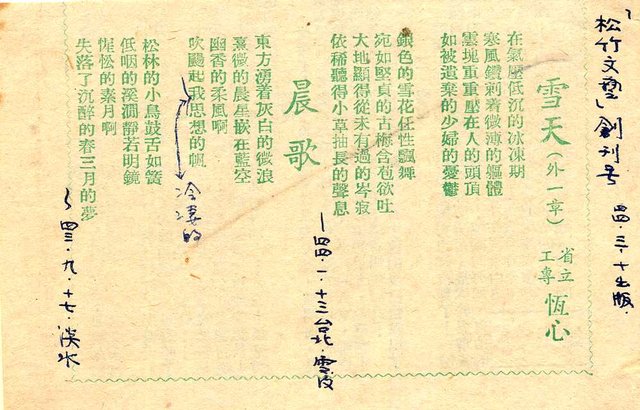 「松竹文藝」創刊号 四四・三・十出版・
雪天(外一章) 省立工專 恆心
在氣壓低沉的冰凍期
寒風鑽刺着微薄的軀體
雲塊重重壓在人的頭頂
如被遺棄的少婦的憂鬱
銀色的雪花任性飄舞
宛如堅貞的古梅含苞欲吐
大地顯得從未有過的岑寂
依稀聽得小草抽長的聲息
—四四・一・十三台北・雪夜
晨歌
東方湧着灰白的微浪
熹微的晨星嵌在藍空
幽香的柔風啊
吹颺起我思想的帆
冷凄的
松林的小鳥鼓舌如簧
低咽的溪澗靜若明鏡
惺忪的素月啊
失落了沉醉的春三月的夢
～四三・九・十七・淡水